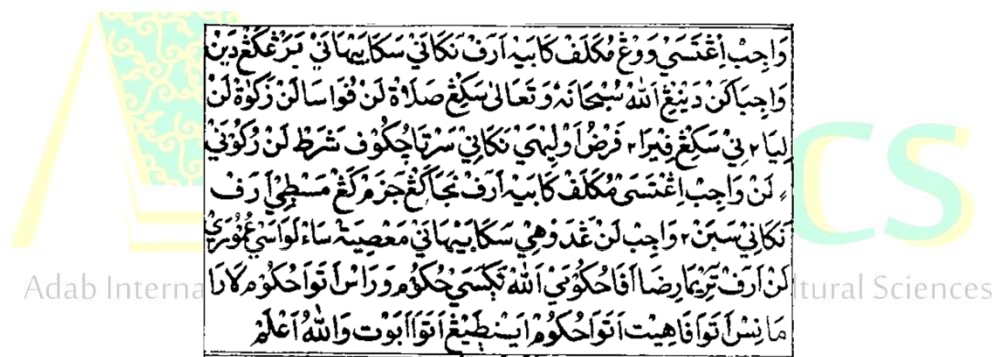 وَاجِبْ اِڠَتَسَيْ وَوْڠْ مُكَلَّفْ كَابَيْهْ اَرَفْ نَكَانِيْ سَكَابَيْهَانَيْ بَرَڠْ كَڠْ دَيْنْ
وَاجِبَاكَنْ دَيْنِيْڠْ اَللهْ سُبْحَانَهُ وَتَعَالَى سَكِڠْ صَلَاةْ لَنْ فُوَاسَا لَنْ زَكَوٰةْ لَنْ
لِيَا ٢ نَيْ سَكِڠْ فِيْرَا ٢ فَرْضُ اَوْلَيْهَيْ نَكَانِيْ سَرْتَا چُكُوْفْ شَرَطْ لَنْ رُكُوْنَيْ
لَنْ وَاجِبْ اِڠَتَسَيْ مُكَلَّفْ كَابَيْهْ اَرَفْ جَزَمْ كَڠْ مَسْطِيْ اَرَفْ
نَكَانِيْ سَبَنْ ٢ وَاجِبْ لَنْ ڠَدَوْهِيْ سَكَابَيْهَانَيْ مَعْصِيَةْ سَاءْلَوَاسَيْ عُمُوْرَيْ
لَنْ اَرَفْ تَرِيْمَا رِضَا اَفَا حُكُوْمَيْ اَللهْ تٓكْسَيْ حُكُوْمْ وَرَاسْ اَتَوَا حُكُوْمْ لَارَا
مَانِسْ اَتَوَا فَاهِيْت اَتَوَا حُكُوْمْ اَيْنْطَيْڠْ اَتَوَا اَبَوْت وَاللهُ اَعْلَمْ
Adab Interna ltural Sciences